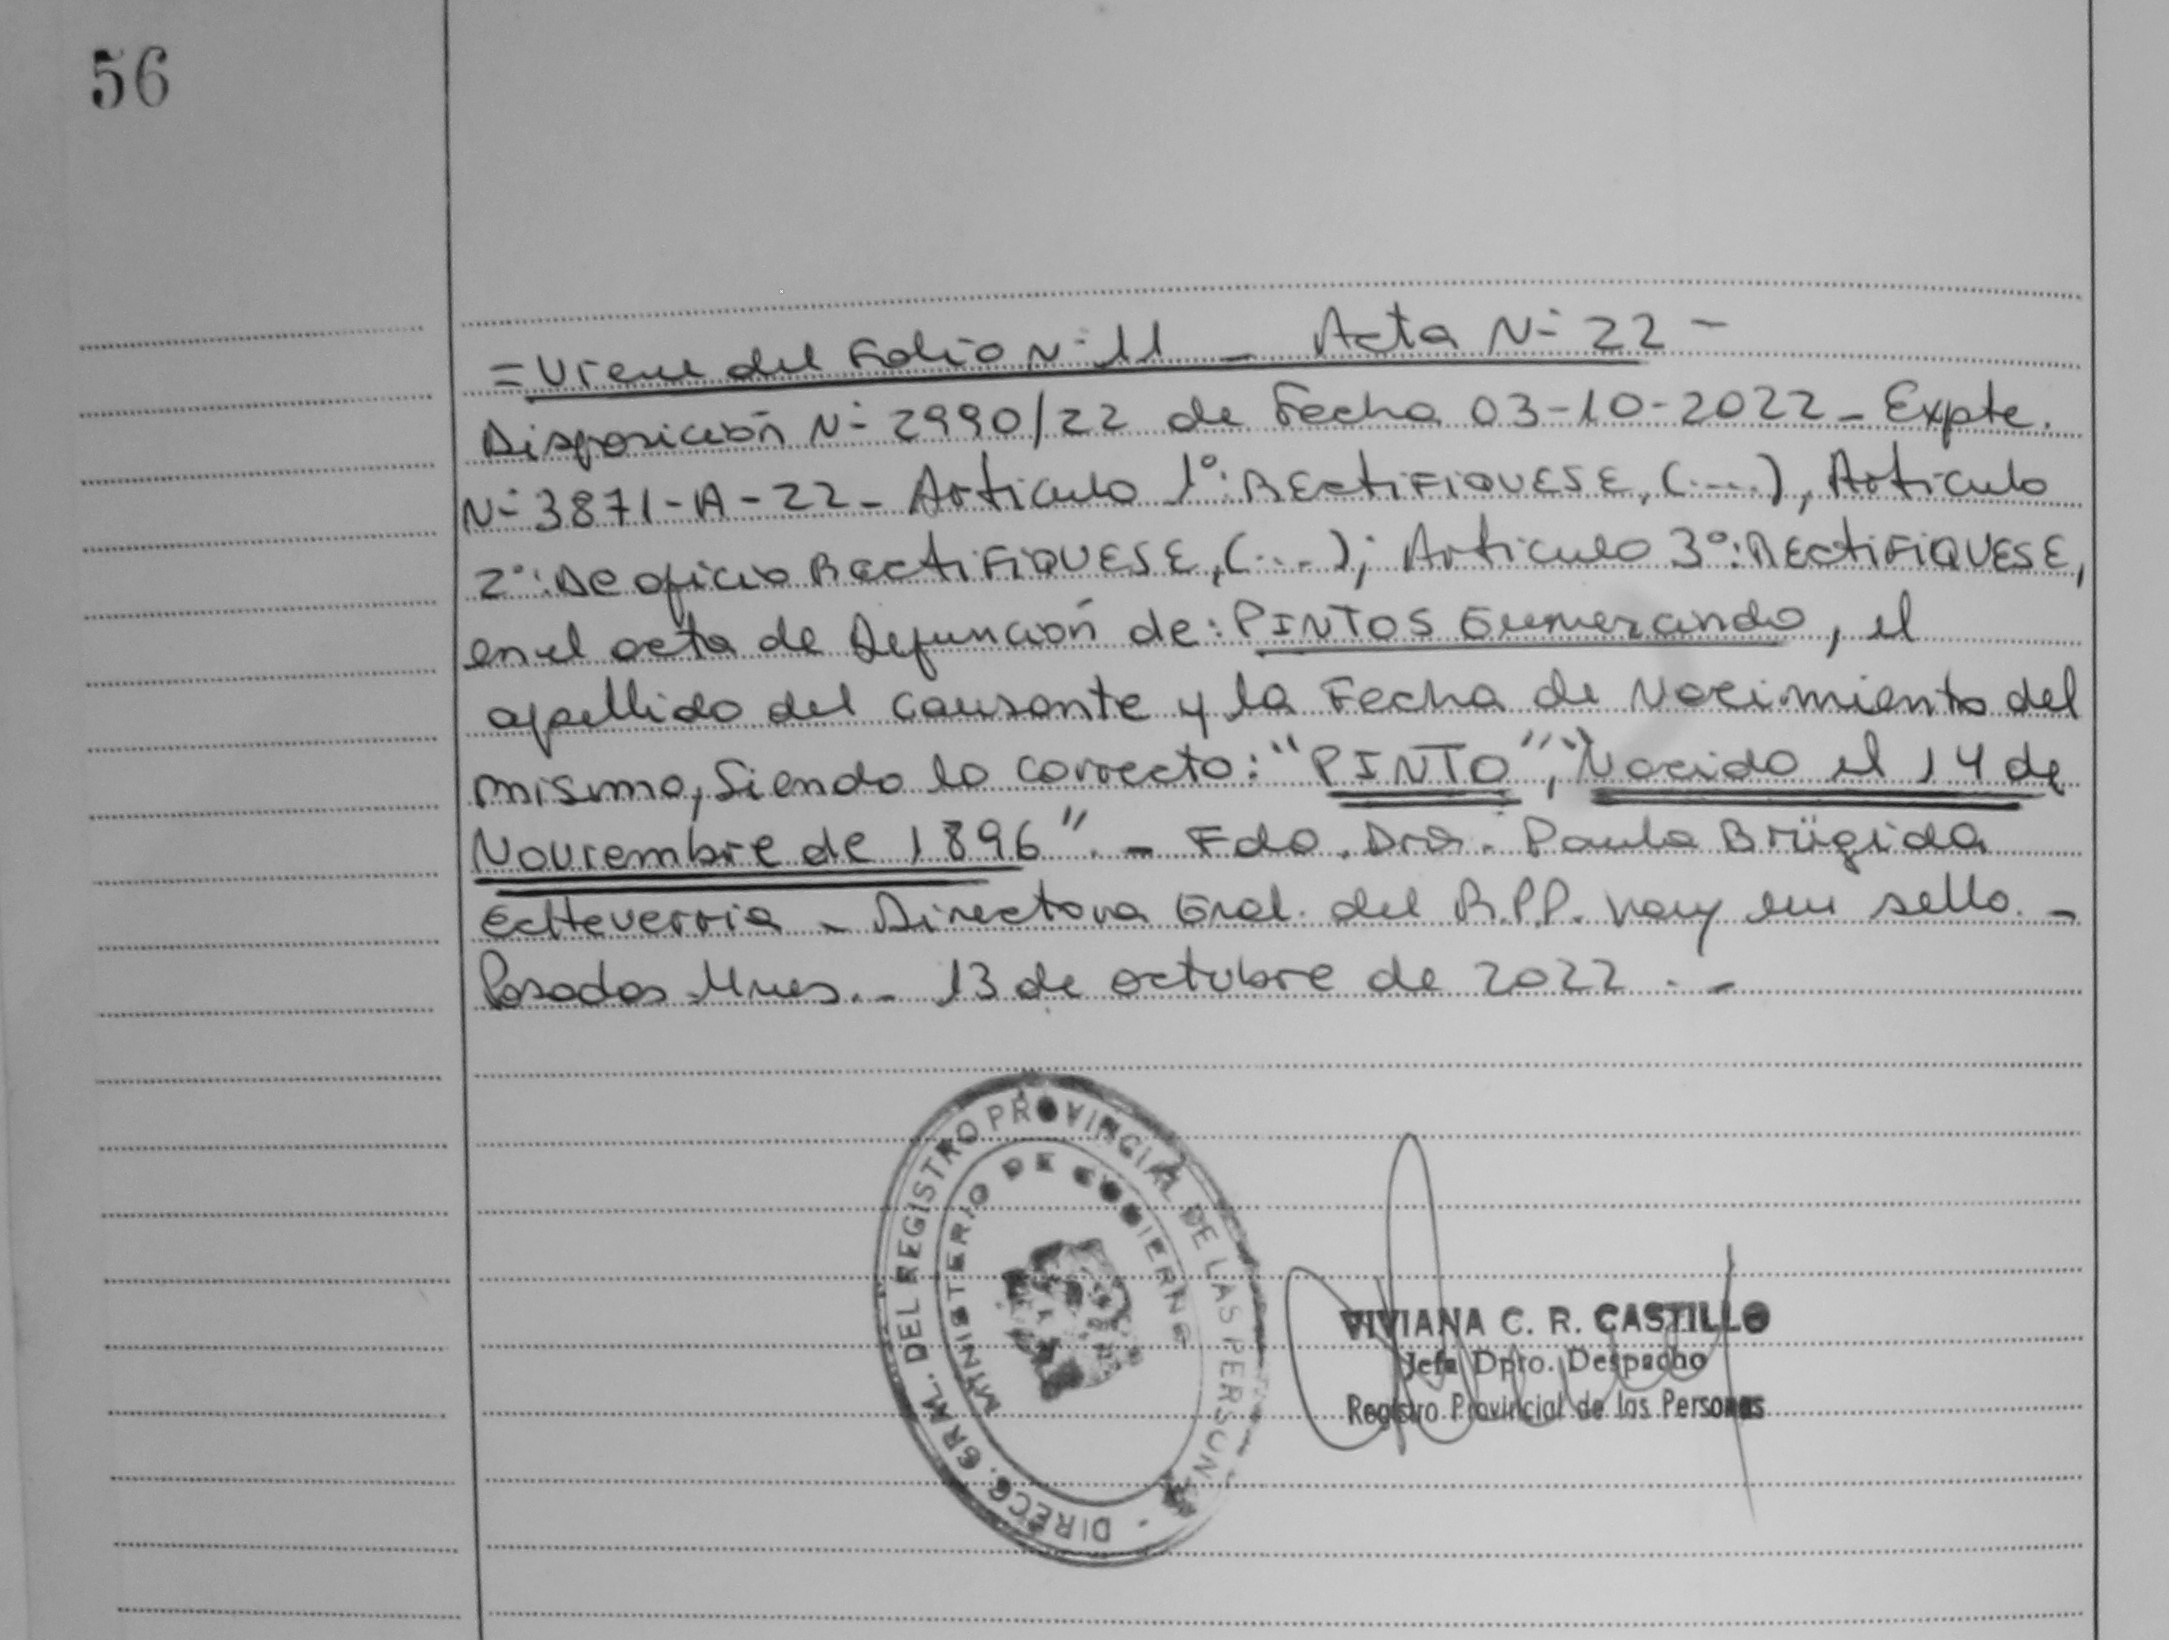 56
=Viene del Folio N° 11 - Acta N° 22 -
Disposición N° 2990/22 de Fecha 03-10-2022 - Expte.
N° 3871-A-22 - Artículo 1°: RECtiFiQUESE, (....), Artículo
2°: De oficio RectiFiQUESE, (....); Artículo 3°: RECtiFiQUESE,
en el acta de Defunción de: PINTOS Gumercindo, el
apellido del causante y la Fecha de Nacimiento del
mismo, Siendo lo correcto: "PINTO", "Nacido el 14 de
Noviembre de 1896". - Fdo. Dra. Paula Brügida
Echeverria - Directora Gral. del R.P.P. hay un sello. -
Posadas Mnes. - 13 de octubre de 2022 . -
DIRECC. GRAL. DEL REGISTRO PROVINCIAL DE LAS PERSONAS
MINISTERIO DE GOBIERNO
VIVIANA C. R. CASTILLO
Jefa Dpto. Despacho
Registro Provincial de las Personas